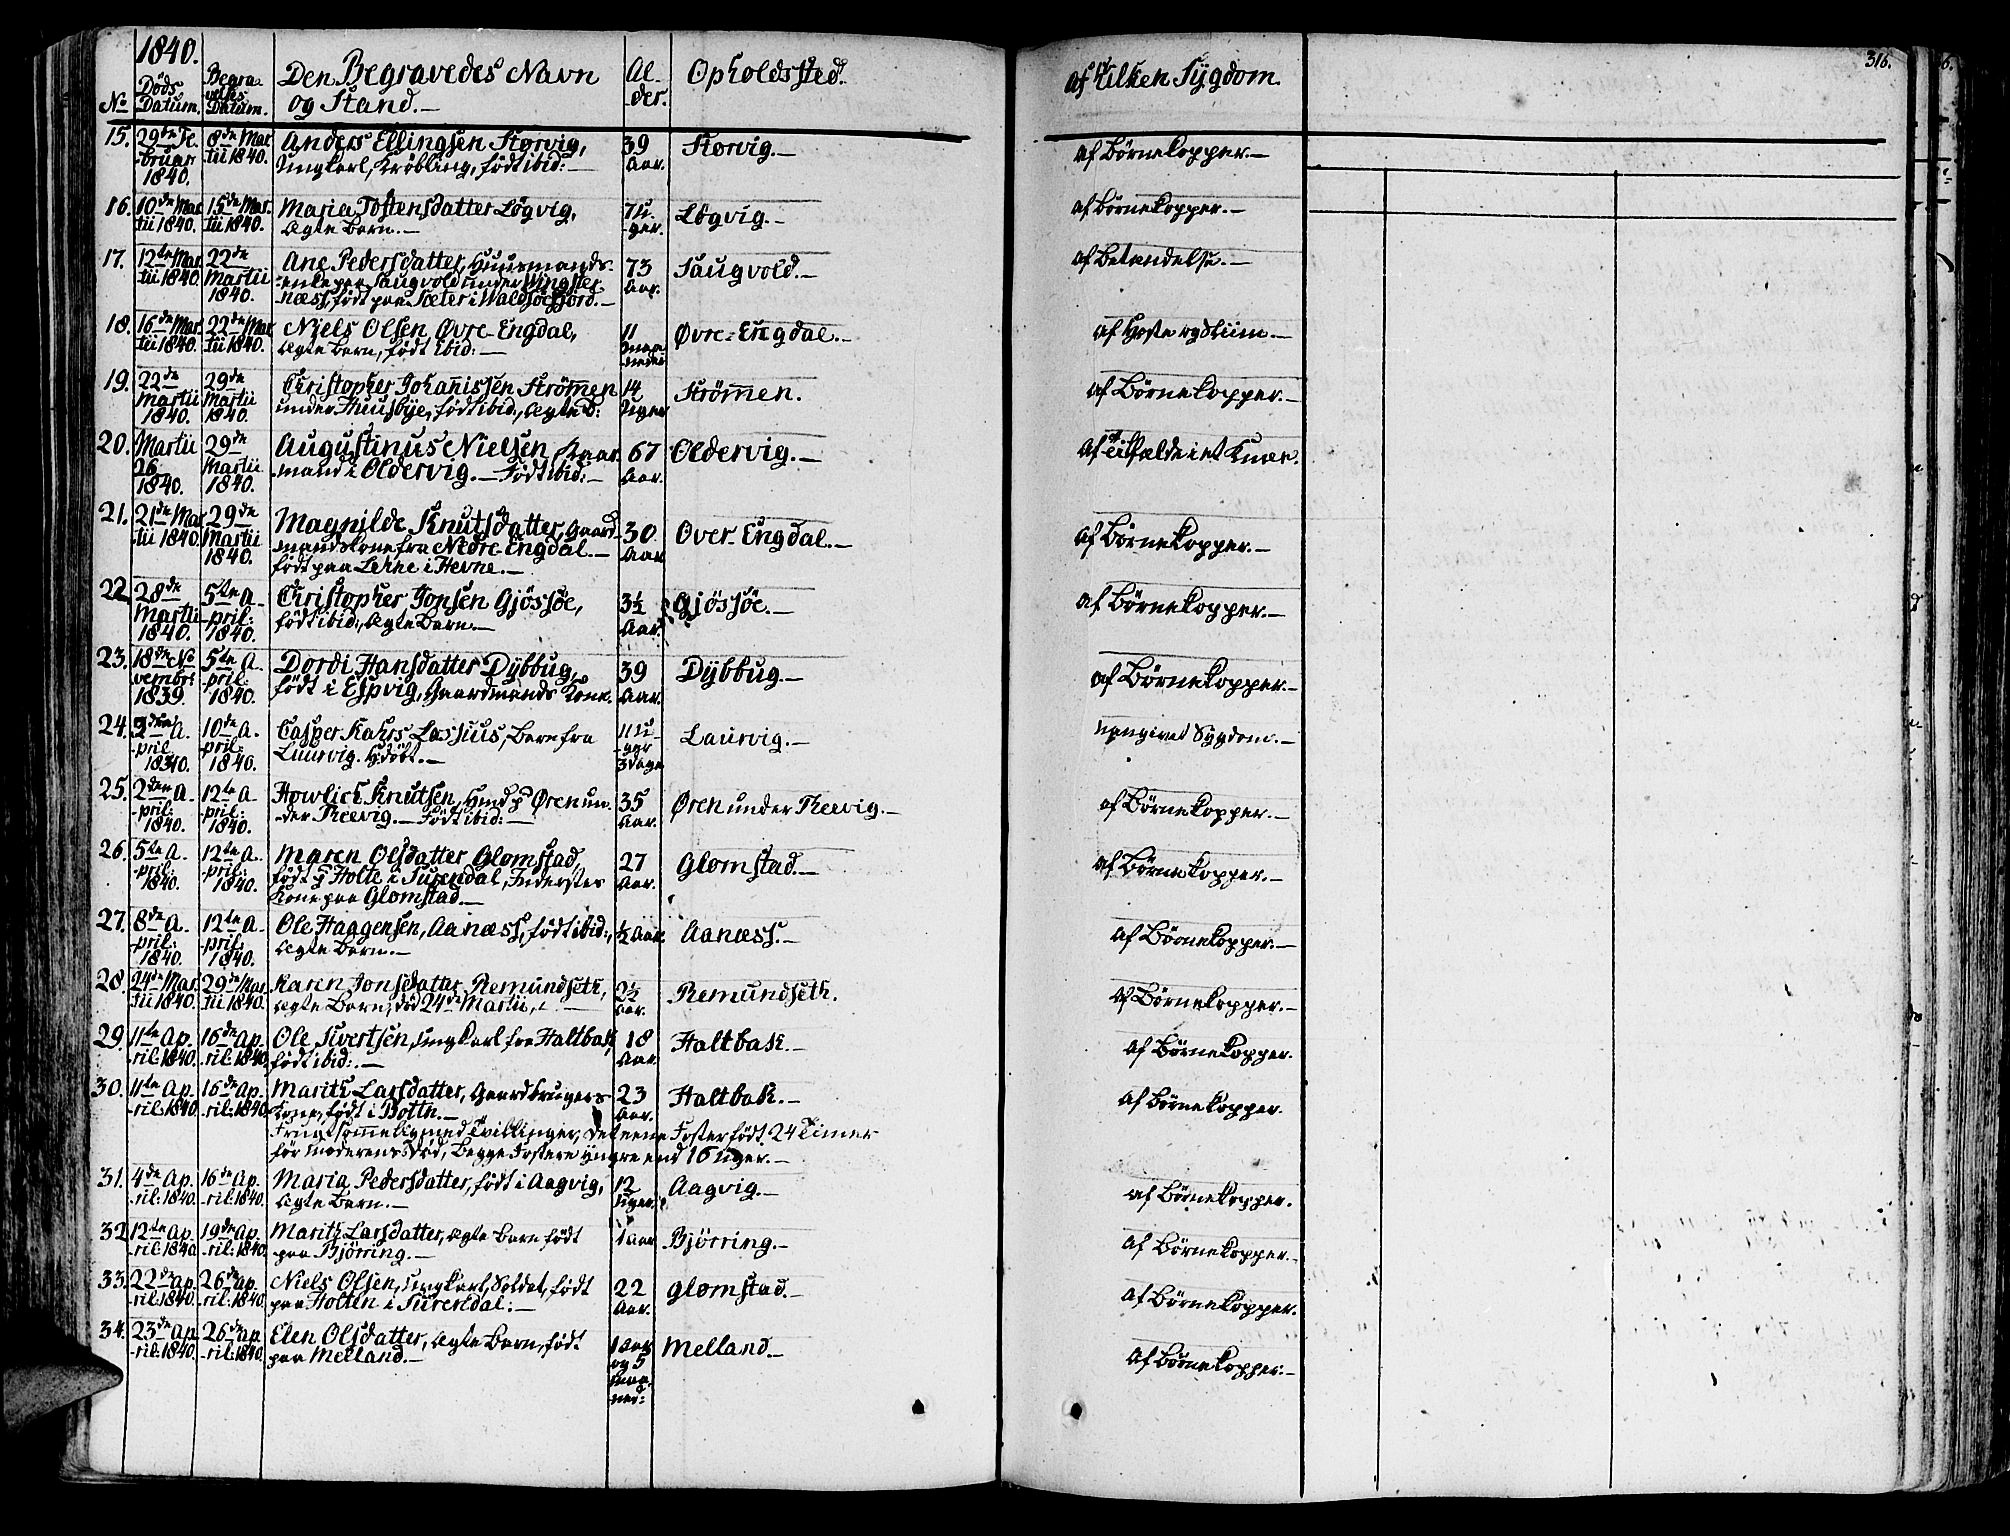 316.
1840.
No
Döds Datum.
Begravelses Datum.
Den Begravedes Navn og Stand.—
Alder.
Opholdssted.
af hvilken Sÿgdom.
15. 29de Februar 1840. 8de Martii 1840. Anders Ellingsen Størvig, 39 Størvig.— af Börnekopper.—
Ungkarl, Krøbling, födt ibid:— Aar.
16. 10de Martii 1840. 15de Martii 1840. Maria Tostensdatter Lögvig, 7 Uger. Lögvig.— af Börnekopper.—
Ægte Barn.—
17. 12te Martii 1840. 22de Martii 1840. Ane Pedersdatter, Huusmands- 73 Aar. Saugvold.— af Betændelse.—
enke paa Saugvold under
næss, födt paa Sæter i Waldsöefjord.—
18. 16de Martii 1840. 22de Martii 1840. Niels Olsen Øvre-Engdal, 11 maaneder Øvre-Engdal.— af
Ægte Barn, födt ibid:—
19. 22de Martii 1840. 29de Martii 1840. Christopher Johanissen Strömen 14 Uger Strömen. af Börnekopper.—
under Huusbÿe, födt ibid, Ægte B:
20. Martii 26 1840. 29de Martii 1840. Augustinus Nielsen, Kaar- 67 Aar. Oldervig.— af tilfælde i et Knæe.
mand i Oldervig.— Födt ibid:—
21. 21de Martii 1840. 29de Martii 1840. Magnilde Knutsdatter, Gaard- 30 Aar Over-Engdal.— af Börnekopper.—
mandskone fra Nedre Engdal.—
födt paa Lerne i Hevne.—
22 28de Martii 1840. 5te April: 1840. Christopher Jonsen Gjössöe, 3½ Aar. Gjössöe.— af Börnekopper.—
födt ibid:, Ægte Barn.—
23. 18de Novembr: 1839. 5te April: 1840. Dordi Hansdatter Dÿbbug, 39 Aar. Dÿbbug.— af Börnekopper.—
födt i Espvig, Gaardmands Kone.
24. 2den April 1840. 10de April: 1840. Casper Kahrs Lassius, Barn fra 11 Uger 3 dage Laurvig.— uangivet Sygdom.—
Laurvig. Hjdöbt.—
25. 2den April: 1840. 12te April: 1840. Howlich Knutsen, Hmd p Øren un- 35 Aar. Øren under Reevig.— af Börnekopper.—
der Reevig.— Födt ibid:—
26. 5te April: 1840. 12te April: 1840. Maren Olsdatter Glomstad, 27 Aar. Glomstad.— af Börnekopper.—
födt p Holte i Surendal, Inderstes
Kone paa Glomstad.—
27. 8de April: 1840. 12te April: 1840. Ole Haagensen, Aanæss, födt ibid:, ½ Aar. Aanæss.— af Börnekopper.—
Ægte Barn.—
28. 24de Martii 1840. 29de Martii 1840. Karen Jonsdatter Remundseth, 2½ Aar. Remundseth. af Börnekopper.—
Ægte Barn, död 24de Martii,
29. 11te April: 1840. 16de April: 1840. Ole Sivertsen, Ungkarl fra Haltbak, 18 Aar. Haltbak.— af Börnekopper.
födt ibid:.—
30. 11te April: 1840. 16de April: 1840. Marith Larsdatter, Gaardbrugers 23 Aar. Haltbak.— af Börnekopper.
Kone, födt i Bottn.—
Frugtsommelig med Tvillinger, det eene Foster födt 24 Timer
för moderens Död, Begge Fostere yngre end 16 Uger.—
31. 4de April: 1840. 16de April: 1840. Maria Pedersdatter, födt i Aagvig, 12 Uger. Aagvig.— af Börnekopper.
Ægte Barn.—
32 12te April: 1840 19de April: 1840. Marith Larsdatter, Ægte Barn födt 1 Aar Björring.— af Börnekopper.—
paa Björring.—
33. 22de April: 1840. 26de April: 1840. Niels Olsen, Ungkarl, Soldat, födt 22 Aar. Glomstad.— af Börnekopper.
paa Holten i Surendal:—
34. 23de April: 1840. 26de April: 1840. Elen Olsdatter, Ægte Barn, födt 1 Aar og 5 maaned: Melland.— af Börnekopper:—
paa Melland.—